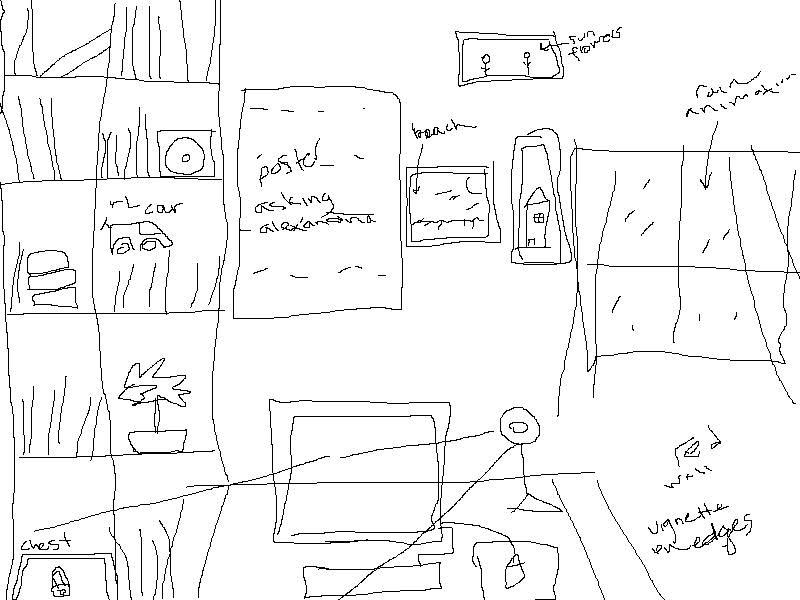 sun
flowers
rain
animation
beach
poster
asking
alexandria
RL car
red
wall
vignette
on edges
chest